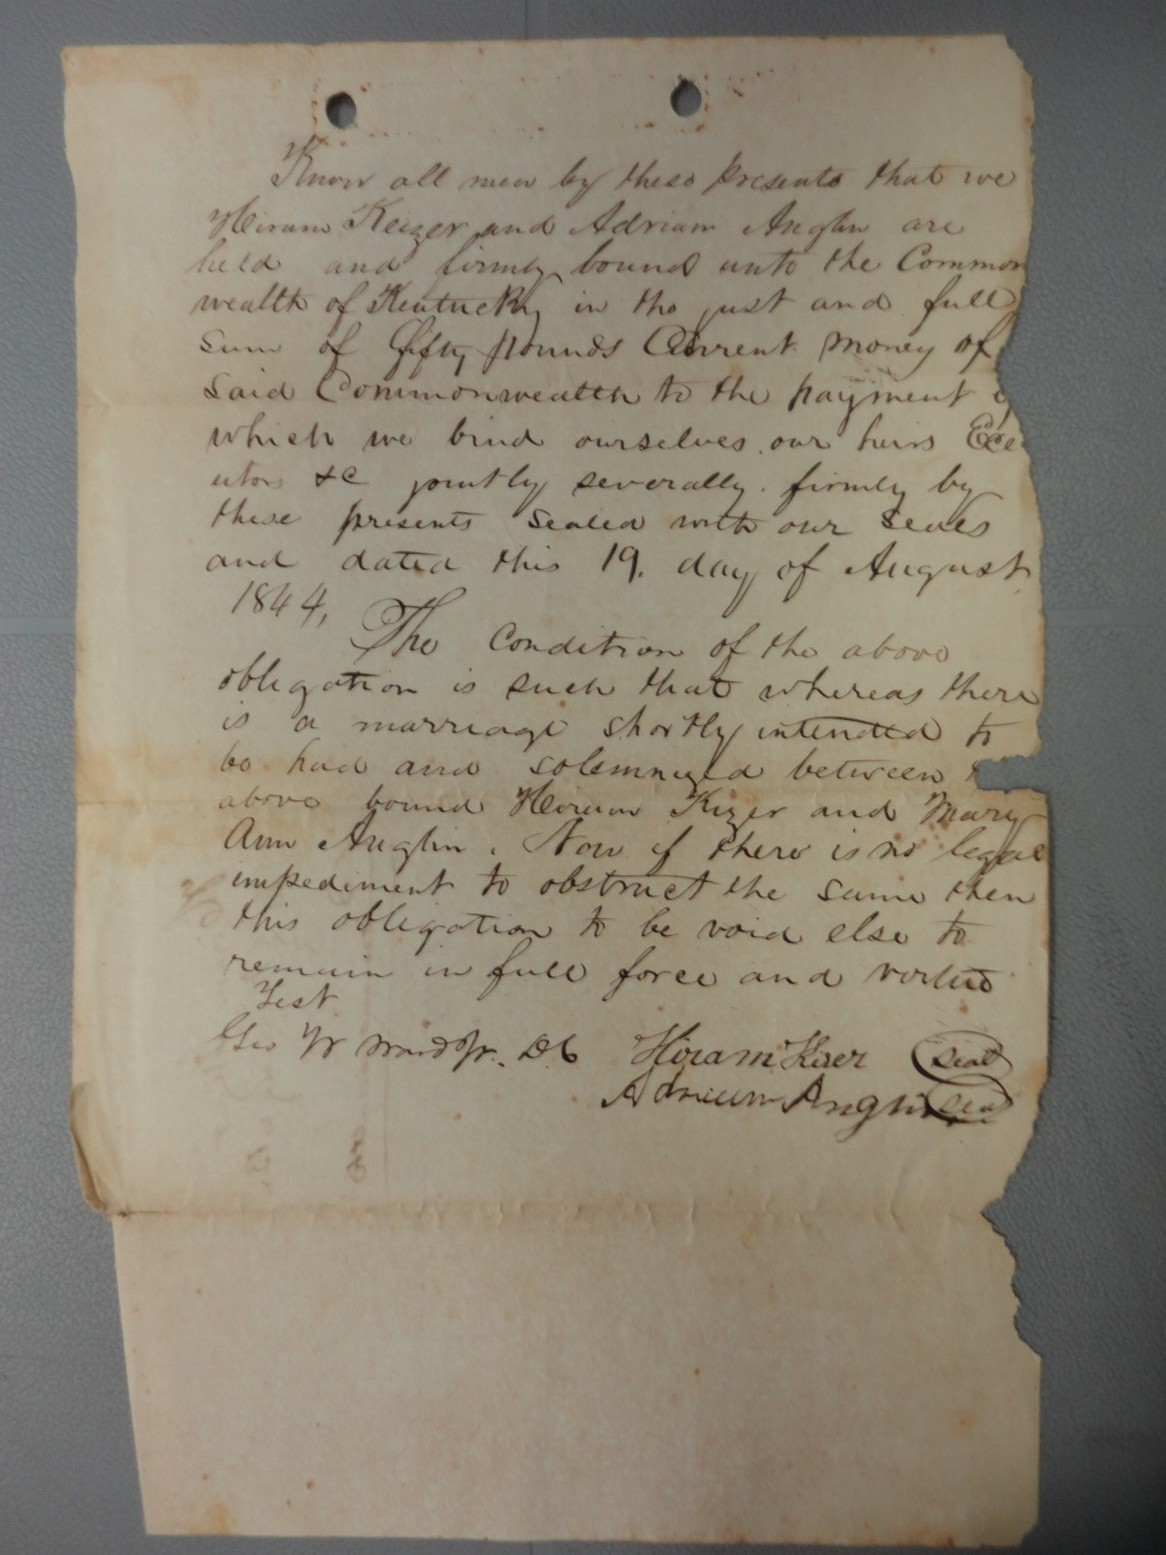 Know all men by these presents that we
Hiram Keizer and Adrian Anglin are
held and firmly bound unto the Common
wealth of Kentucky in the just and full
sum of fifty pounds Current money of
said Commonwealth to the payment
which we bind ourselves our heirs Exe
utors &c jointly severally firmly by
these presents sealed with our seals
and dated this 19. day of August
1844,
The Condition of the above
obligation is such that whereas there
is a marriage shortly intended to
be had and solemnized between
above bound Hiram Kizer and Mary
Ann Anglin. Now if there is no legal
impediment to obstruct the same then
this obligation to be void else to
remain in full force and virtue
Test
Geo W Ward Jr. DC Hiram Kiser seal
Adrian Anglin seal